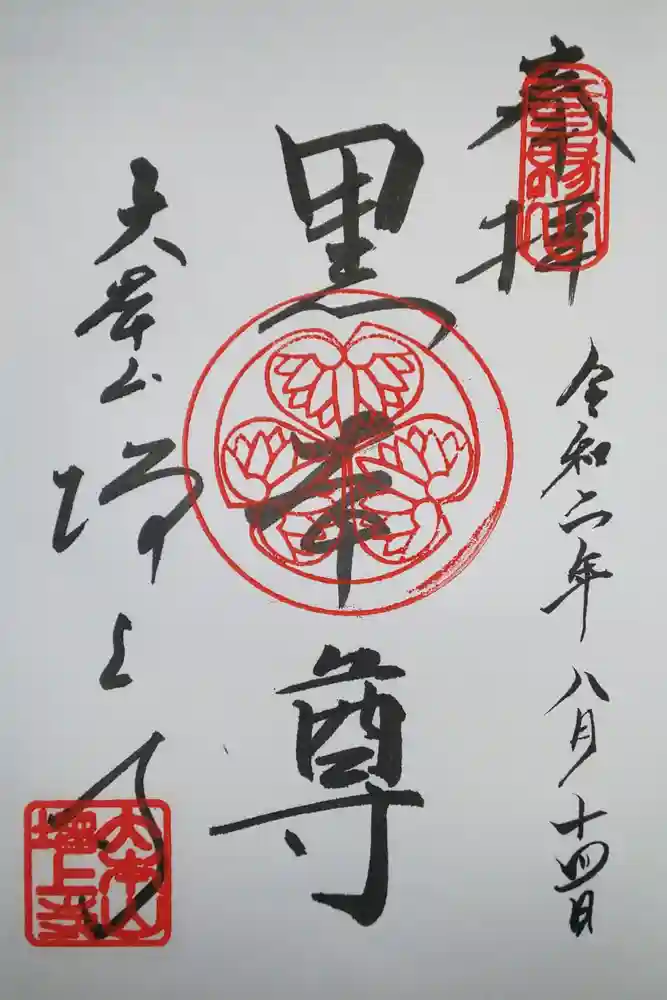 奉拝
令和二年八月十四日
黒本尊
大本山
増上寺
大本山
増上寺